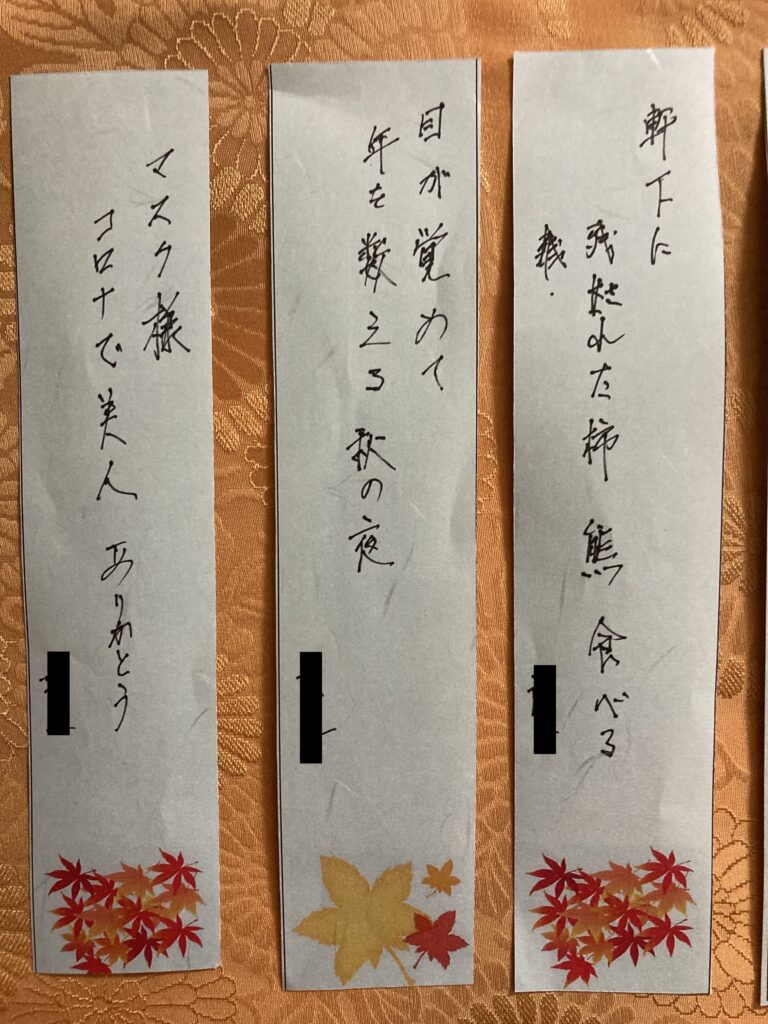 軒下に
残された柿 熊 食べる
目が覚めて
年を数える 秋の夜
マスク様
コロナで美人 ありがとう